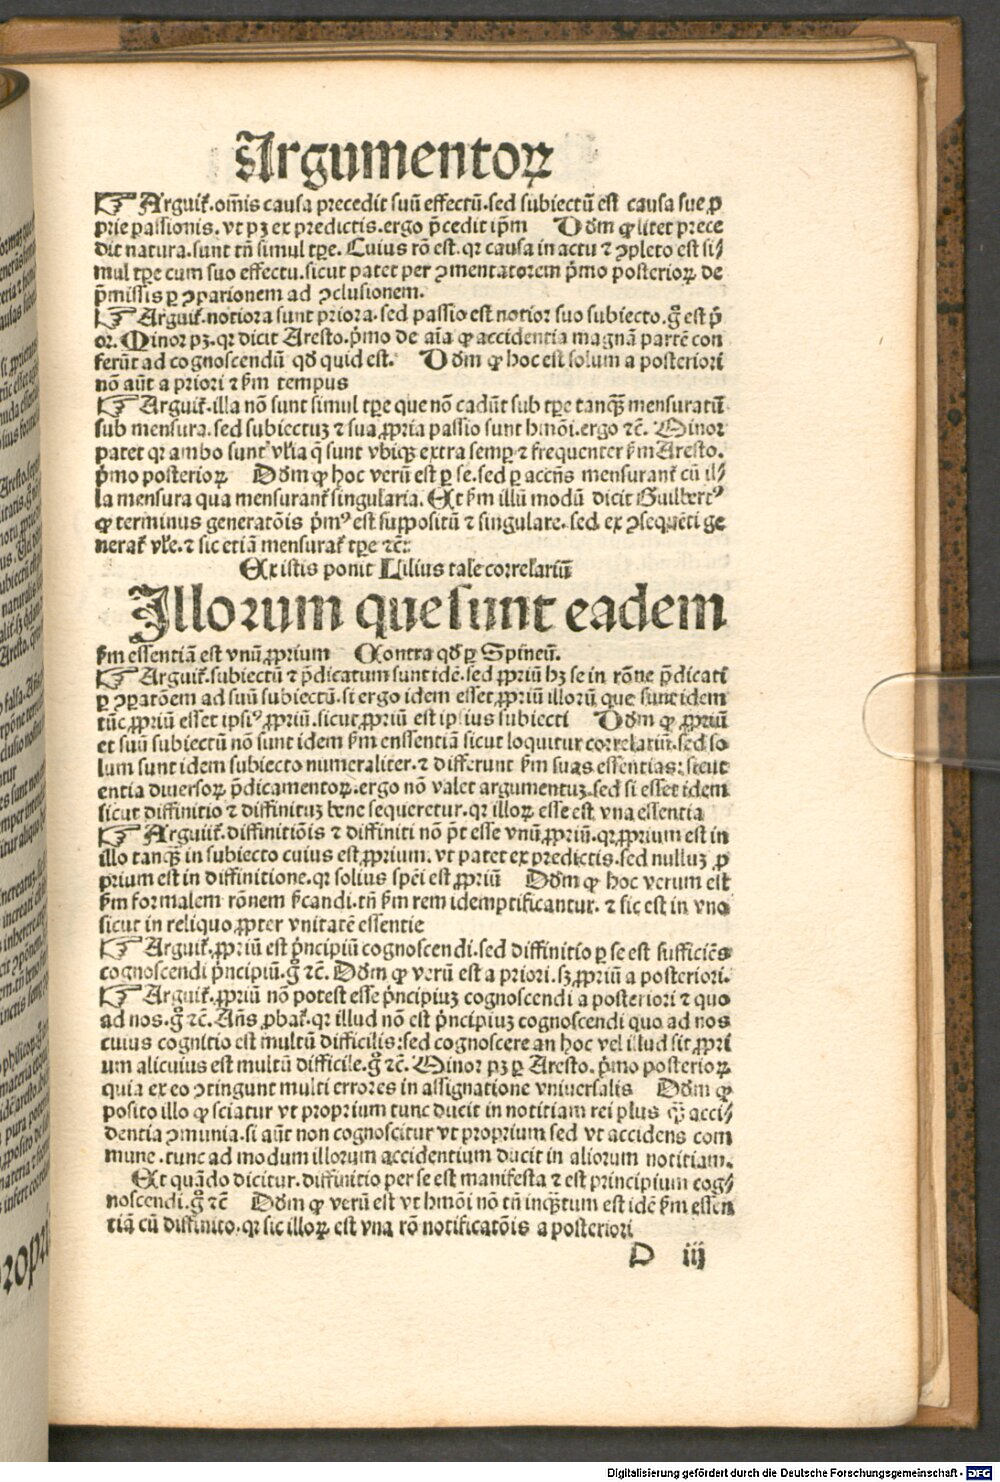 Argumentoꝝ
☞ Arguit᷑.om̄is causa precedit suū effectū.sed subiectū est causa sue ꝓ
prie passionis. vt pꝫ ex predictis.ergo p̄cedit ip̄m Dd̄m ꝙ lꝫ prece
dit natura.sunt tn̄ simul tp̄e. Cuius rō est.qr causa in actu ⁊ ꝯpleto est si⸗
mul tp̄e cum suo effectu.sicut patet per ꝯmentatorem p̄mo posterioꝝ de
p̄missis ꝑ ꝯparionem ad ꝯclusionem.
☞ Arguit᷑.notiora sunt priora.sed passio est notior suo subiecto.g̊ est p̄
or. Minor pꝫ.qr dicit Aresto.p̄mo de aīa ꝙ accidentia magnā partē con
ferūt ad cognoscendū qd̄ quid est. Dd̄m ꝙ hoc est solum a posteriori
nō aūt a priori ⁊ ẜm tempus
☞ Arguit᷑.illa nō sunt simul tp̄e que nō cadūt sub tp̄e tanqꝫ̄ mensuratū
sub mensura.sed subiectuꝫ ⁊ sua ꝓpria passio sunt hmōi.ergo ⁊c̄. Minor
patet qr ambo sunt vl̄ia q̄ sunt vbiqꝫ extra sempꝑ ⁊ frequenter ẜm Aresto.
p̄mo posterioꝝ Dd̄m ꝙ hoc verū est ꝑ se.sed ꝑ accn̄s mensurant᷑ cū il⸗
la mensura qua mensurant᷑ singularia. Et ẜm illū modū dicit Guilbertꝰ
ꝙ terminus generatōis p̄mꝰ est suppositū ⁊ singulare.sed ex ꝯsequēti ge
nerat᷑ vl̄e.⁊ sic etiā mensurat᷑ tp̄e ⁊c̄:
Ex istis ponit Lilius tale correlariū
Illorum que sunt eadem
ẜm essentiā est vnū ꝓprium Contra qd̄ ꝑ Spineū.
☞ Arguit᷑.subiectū ⁊ p̄dicatum sunt idē.sed ꝓpriū hꝫ se in rōne p̄dicati
ꝑ ꝯparatōem ad suū subiectū.si ergo idem esset ꝓpriū illorū que sunt idem
tūc ꝓpriū esset ipsiꝰ ꝓpriū.sicut ꝓpriū est ipsius subiecti Dd̄m ꝙ ꝓpriū
et suū subiectū nō sunt idem ẜm enssentiā sicut loquitur correlariū.sed so
lum sunt idem subiecto numeraliter.⁊ differunt ẜm suas essentias: sicut
entia diuersoꝝ p̄dicamentoꝝ.ergo nō valet argumentuꝫ.sed si esset idem
sicut diffinitio ⁊ diffinituꝫ bene sequeretur.qr illoꝝ esse est vna essentia
☞ Arguit᷑.diffinitiōis ⁊ diffiniti nō p̄t esse vnū ꝓpriū.qr ꝓprium est in
illo tanqꝫ̄ in subiecto cuius est ꝓprium. vt patet ex predictis.sed nulluꝫ ꝓ
prium est in diffinitione.qr solius spēi est ꝓpriū Dd̄m ꝙ hoc verum est
ẜm formalem rōnem ẜcandi.tn̄ ẜm rem idemptificantur. ⁊ sic est in vno
sicut in reliquo ꝓpter vnitatē essentie
☞ Arguit᷑.ꝓpriū est p̄ncipiū cognoscendi.sed diffinitio ꝑ se est sufficiēs
cognoscendi p̄ncipiū.g̊ ⁊c̄. Dd̄m ꝙ verū est a priori.sꝫ ꝓpriū a posteriori.
☞ Arguit᷑.ꝓpriū nō potest esse p̄ncipiuꝫ cognoscendi a posteriori ⁊ quo
ad nos.g̊ ⁊c̄. Añs ꝓbat᷑.qr illud nō est p̄ncipiuꝫ cognoscendi quo ad nos
cuius cognitio est multū difficilis:sed cognoscere an hoc vel illud sit ꝓpri
um alicuius est multū difficile.g̊ ⁊c̄. Minor pꝫ ꝑ Aresto. p̄mo posterioꝝ
quia ex eo ꝯtingunt multi errores in assignatione vniuersalis Dd̄m ꝙ
posito illo ꝙ sciatur vt proprium tunc ducit in notitiam rei plus qꝫ̄ acci⸗
dentia ꝯmunia.si aūt non cognoscitur vt proprium sed vt accidens com
mune.tunc ad modum illorum accidentium ducit in aliorum notitiam.
Et quādo dicitur.diffinitio per se est manifesta ⁊ est principium cog⸗
noscendi.g̊ ⁊c̄ Dd̄m ꝙ verū est vt hmōi nō tn̄ inqꝫ̄tum est idē ẜm essen
tiā cū diffinito.qr sic illoꝝ est vna rō notificatōis a posteriori
D iij
Digitalisierung gefördert durch die Deutsche Forschungsgemeinschaft - DFG